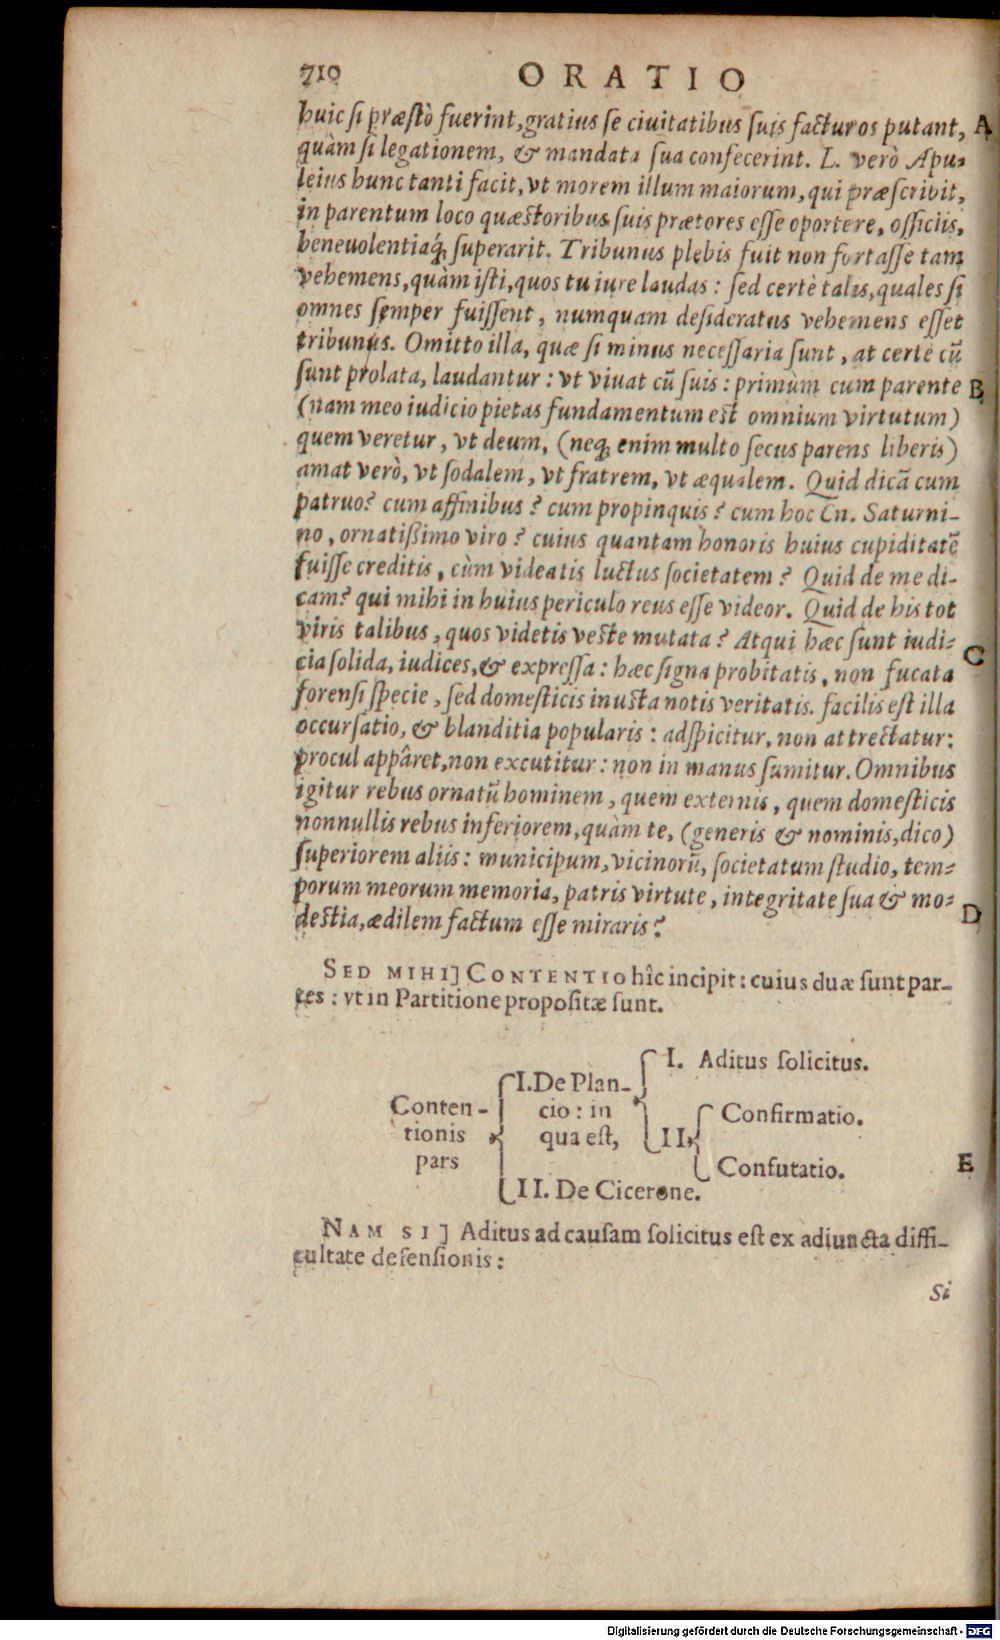 710 ORATIO
huic si præstò fuerint, gratius se ciuitatibus suis facturos putant, A
quàm si legationem, & mandata sua confecerint. L. verò Apu-
leius hunc tanti facit, vt morem illum maiorum, qui præscribit,
in parentum loco quæstoribus suis prætores esse oportere, officiis,
beneuolentiaq́; superarit. Tribunus plebis fuit non fortasse tam
vehemens, quàm isti, quos tu iure laudas: sed certè talis, quales si
omnes semper fuissent, numquam desideratus vehemens esset
tribunus. Omitto illa, quæ si minus necessaria sunt, at certè cū
sunt prolata, laudantur: vt viuat cū suis: primùm cum parente B
(nam meo iudicio pietas fundamentum est omnium virtutum)
quem veretur, vt deum, (neq; enim multo secus parens liberis)
amat verò, vt sodalem, vt fratrem, vt æqualem. Quid dicā cum
patruo? cum affinibus? cum propinquis? cum hoc Cn. Saturni-
no, ornatißimo viro? cuius quantam honoris huius cupiditatē
fuisse creditis, cùm videatis luctus societatem? Quid de me di-
cam? qui mihi in huius periculo reus esse videor. Quid de his tot
viris talibus, quos videtis veste mutata? Atqui hæc sunt iudi-
cia solida, iudices, & expressa: hæc signa probitatis, non fucata C
forensi specie, sed domesticis inusta notis veritatis. facilis est illa
occursatio, & blanditia popularis: adspicitur, non attrectatur:
procul appâret, non excutitur: non in manus sumitur. Omnibus
igitur rebus ornatū hominem, quem externis, quem domesticis
nonnullis rebus inferiorem, quàm te, (generis & nominis, dico)
superiorem aliis: municipum, vicinorū, societatum studio, tem-
porum meorum memoria, patris virtute, integritate sua & mo-
destia, ædilem factum esse miraris? D
SED MIHI] CONTENTIO hîc incipit: cuius duæ sunt par-
tes: vt in Partitione propositæ sunt.
Conten-
tionis
pars
I. De Plan-
cio: in
qua est,
I. Aditus solicitus.
II.
Confirmatio.
Confutatio. E
II. De Cicerone.
NAM SI] Aditus ad causam solicitus est ex adiuncta diffi-
cultate defensionis:
Si
Digitalisierung gefördert durch die Deutsche Forschungsgemeinschaft - DFG